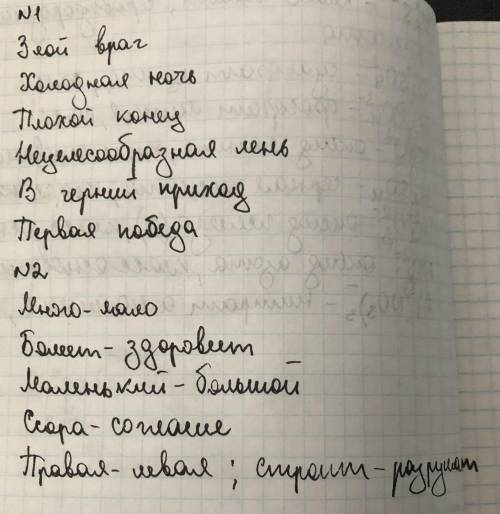 №1
Злой враг
Холодная ночь
Плохой конец
Нецелесообразная лень
В черный приход
Первая победа
№2
Много-мало
Болеет-здоровеет
Маленький-большой
Ссора-согласие
Правая-левая; строит-разрушат